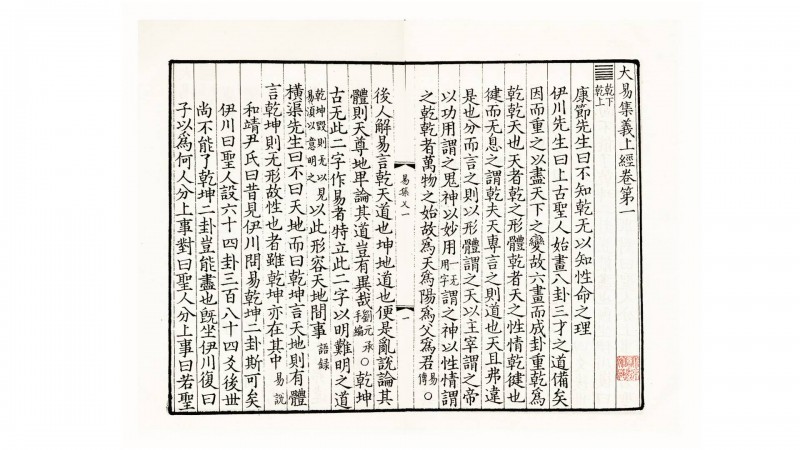 大易集義上經卷第一
䷀乾下乾上
康節先生曰不知乾无以知性命之理
伊川先生曰上古聖人始畫八卦三才之道備矣
因而重之以盡天下之變故六畫而成卦重乾爲
乾乾天也天者乾之形體乾者天之性情乾健也
健而无息之謂乾夫天專言之則道也天且弗違
是也分而言之則以形體謂之天以主宰謂之帝
以功用謂之鬼神以妙用一无用字謂之神以性情謂
之乾乾者萬物之始故爲天爲陽爲父爲君易傳○
易集乂一 一
後人解易言乾天道也坤地道也便是亂說論其
體則天尊地卑論其道豈有異哉劉元承手編○乾坤
古无此二字作易者特立此二字以明難明之道
乾坤毀則无以見易須以意明之以此形容天地間事語錄
橫渠先生曰不曰天地而曰乾坤言天地則有體
言乾坤則无形故性也者雖乾坤亦在其中易說
和靖尹氏曰昔見伊川問易乾坤二卦斯可矣
伊川曰聖人設六十四卦三百八十四爻後世
尚不能了乾坤二卦豈能盡也旣坐伊川復曰
子以爲何人分上事對曰聖人分上事曰若聖